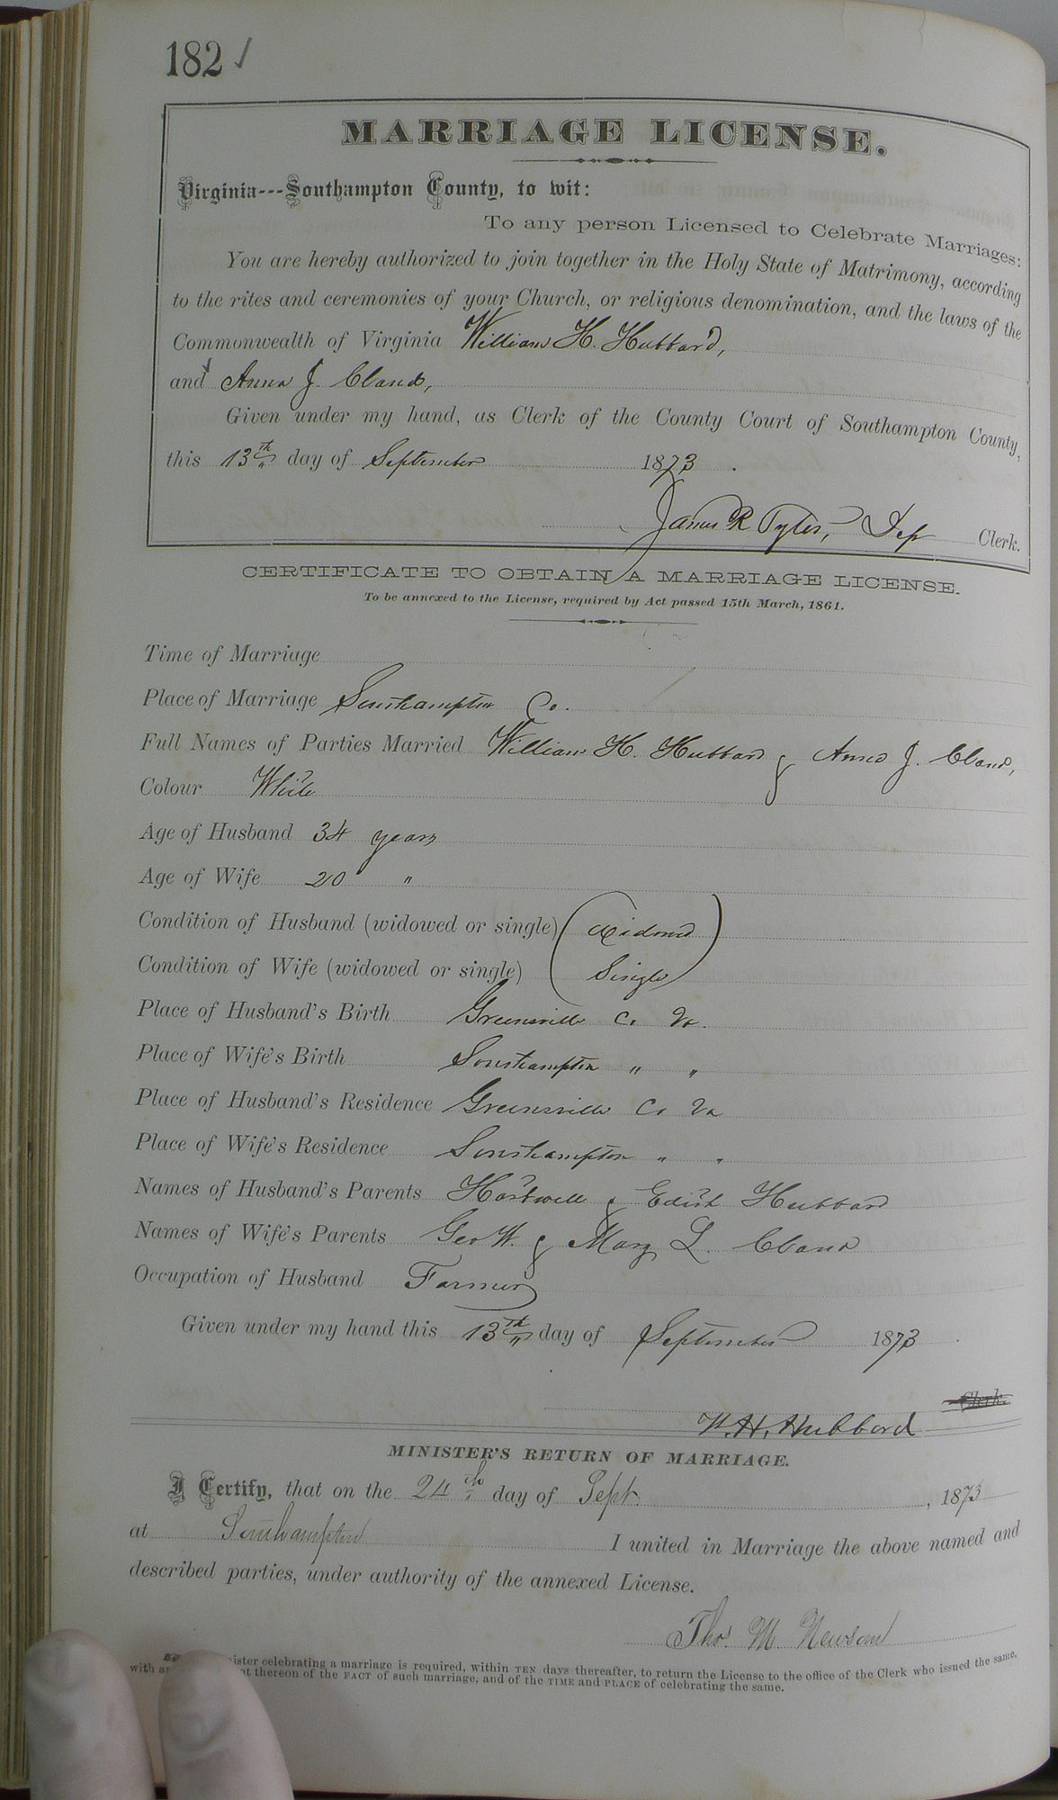 182 ✓
MARRIAGE LICENSE.
Virginia---Southampton County, to wit:
To any person Licensed to Celebrate Marriages:
You are hereby authorized to join together in the Holy State of Matrimony, according
to the rites and ceremonies of your Church, or religious denomination, and the laws of the
Commonwealth of Virginia William H. Hubbard,
and Anna J. Bland,
Given under my hand, as Clerk of the County Court of Southampton County,
this 13th day of September 1873.
James R Tyler, Dep Clerk.
CERTIFICATE TO OBTAIN A MARRIAGE LICENSE.
To be annexed to the License, required by Act passed 15th March, 1861.
Time of Marriage
Place of Marriage Southampton Co.
Full Names of Parties Married William H. Hubbard & Anna J. Bland,
Colour White
Age of Husband 34 years
Age of Wife 20 "
Condition of Husband (widowed or single) Widowed
Condition of Wife (widowed or single) Single
Place of Husband's Birth Greensville Co Va.
Place of Wife's Birth Southampton " "
Place of Husband's Residence Greensville Co Va
Place of Wife's Residence Southampton " "
Names of Husband's Parents Hartwell & Edith Hubbard
Names of Wife's Parents Geo W. & Mary L. Bland
Occupation of Husband Farmer
Given under my hand this 13th day of September 1873
Clerk.
W. H. Hubbard
MINISTER'S RETURN OF MARRIAGE.
I Certify, that on the 24th day of Sept. , 1873
at Southampton I united in Marriage the above named and
described parties, under authority of the annexed License.
Thos. M. Newsom
ister celebrating a marriage is required, within TEN days thereafter, to return the License to the office of the Clerk who issued the same,
with an t thereon of the FACT of such marriage, and of the TIME and PLACE of celebrating the same.